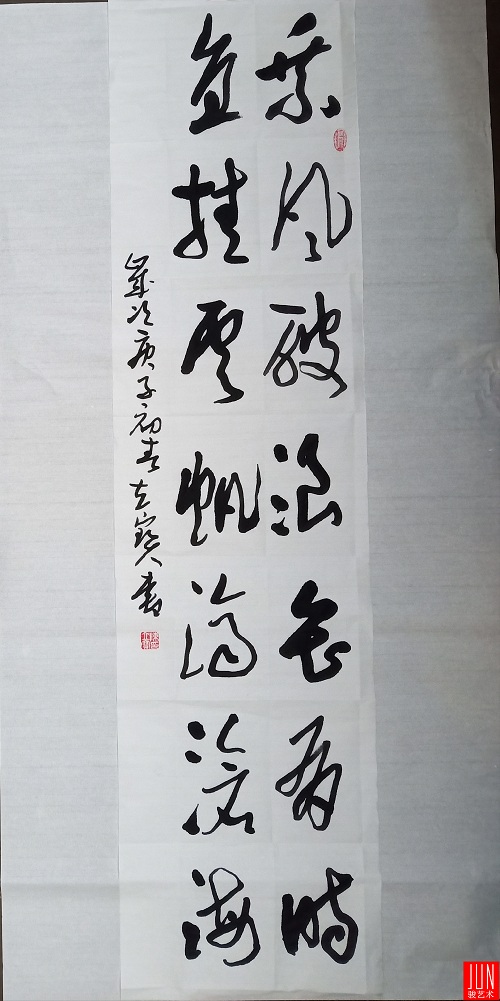 乘风破浪会有时
直挂云帆济沧海
歲次庚子初春書
JUN
骏艺术